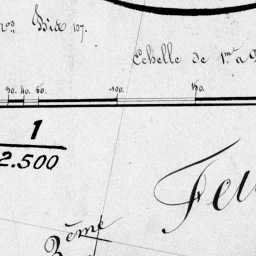 nos Bix 107.
Echelle de 1m à
20. 40. 60. 100. 150.
1
2.500
Feu
3ème